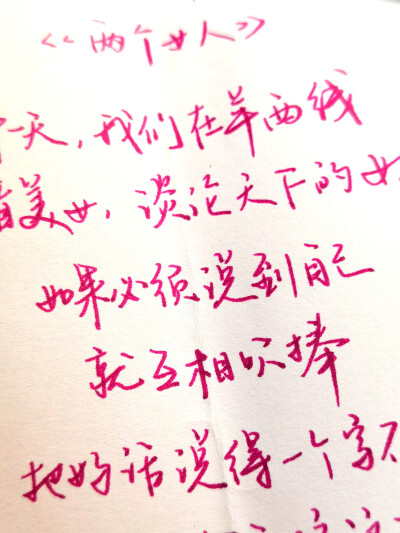 《两个女人》
一天,我们在羊西线
看美女,谈论天下的女
如果必须说到自己
就互相吹捧
把好话说得一个字不